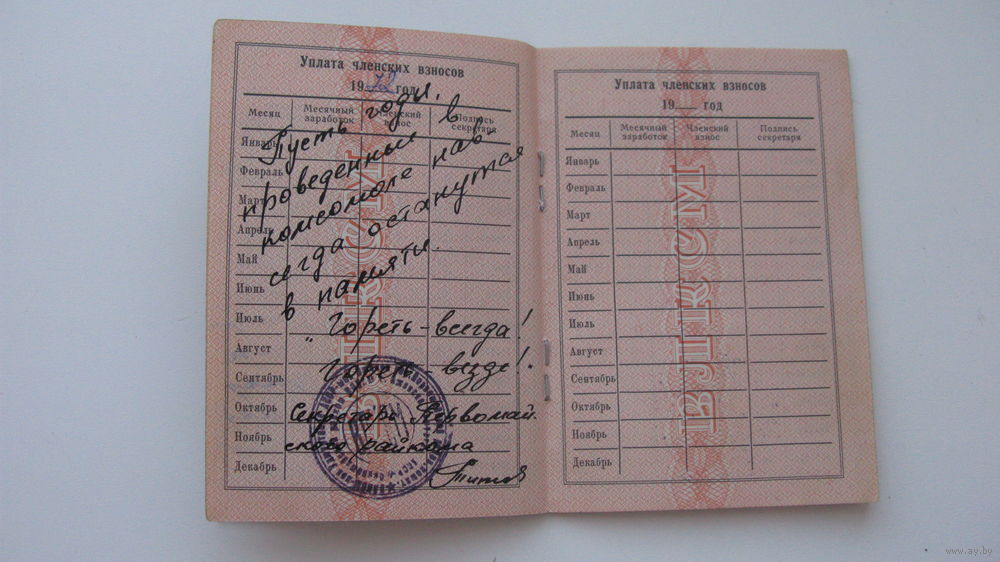 Уплата членских взносов
19 год
Месяц Месячный заработок Членский взнос Подпись секретаря
Январь
Февраль
Март
Апрель
Май
Июнь
Июль
Август
Сентябрь
Октябрь
Ноябрь
Декабрь
Пусть годы,
проведенные в
комсомоле нав
сегда останутся
в памяти.
"Гореть - всегда!
Гореть - везде!"
Секретарь Первомай
ского райкома
ВЛКСМ
Уплата членских взносов
19 год
Месяц Месячный заработок Членский взнос Подпись секретаря
Январь
Февраль
Март
Апрель
Май
Июнь
Июль
Август
Сентябрь
Октябрь
Ноябрь
Декабрь
ВЛКСМ
www.ay.by